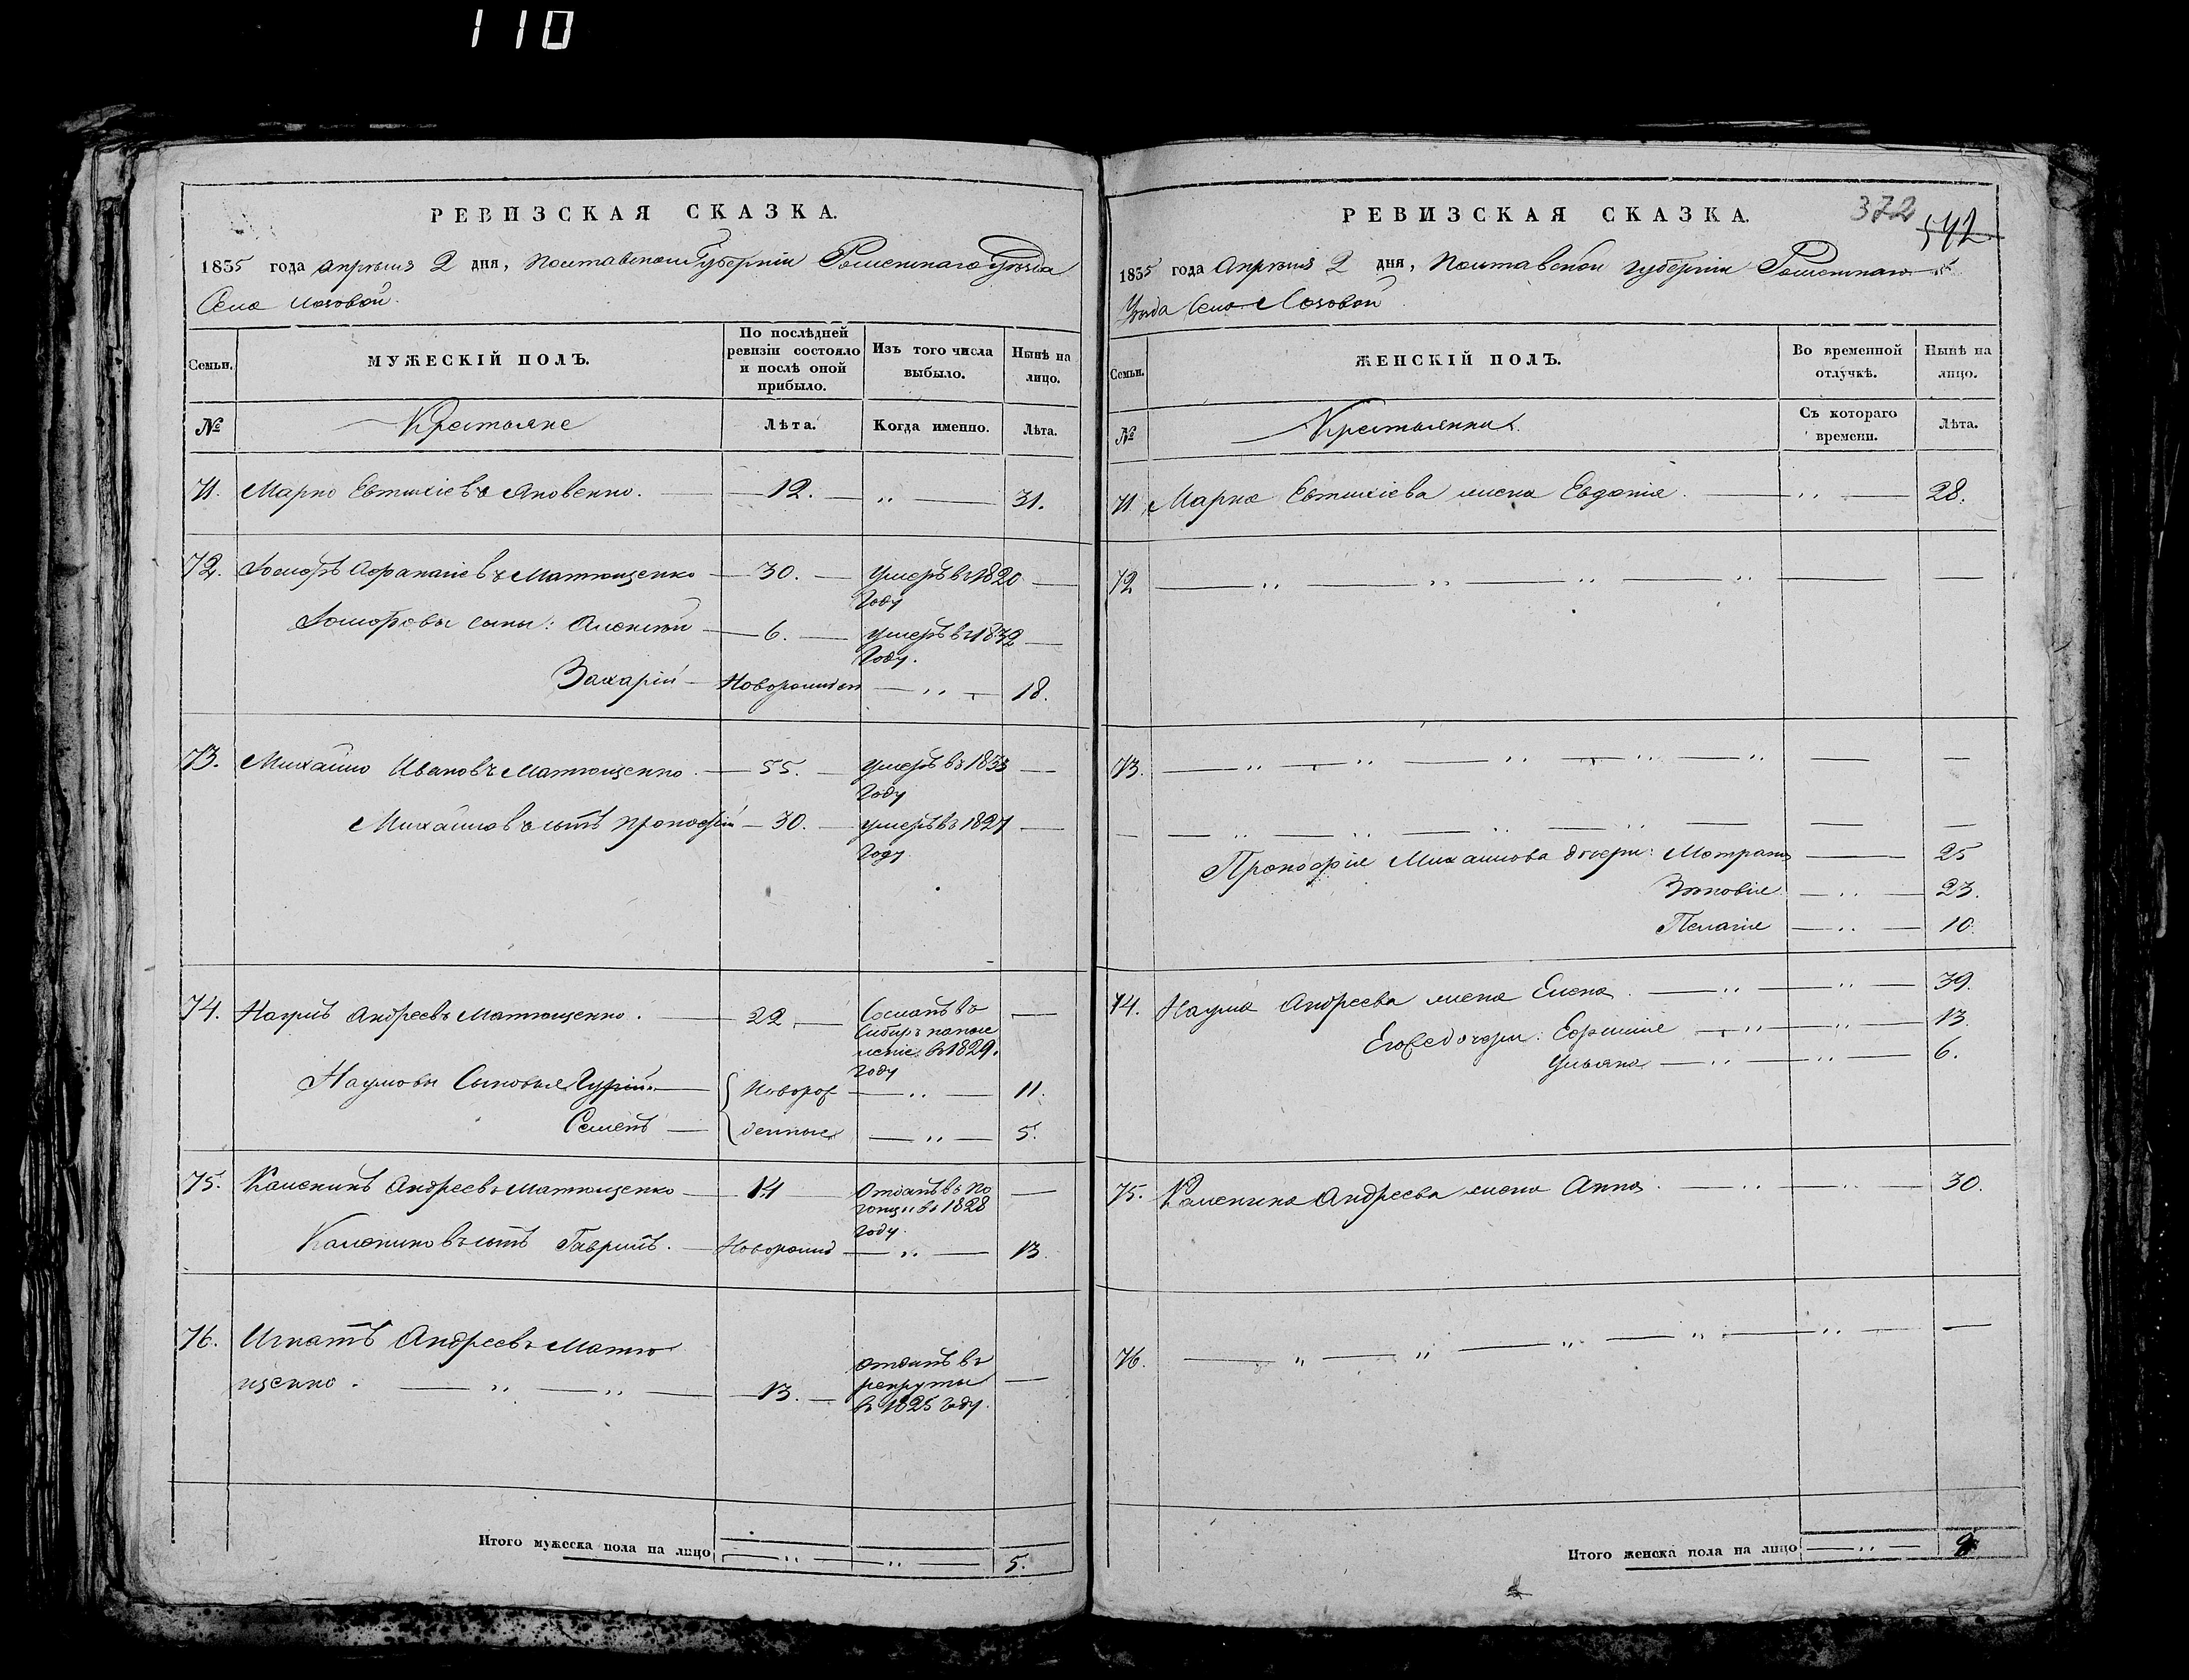 110
РЕВИЗСКАЯ СКАЗКА.
1835 года Апрѣля 2 дня, Полтавской Губерніи Роменскаго Уѣзда
Села Лозовой.
Семьи.
МУЖЕСКІЙ ПОЛЪ.
По послѣдней ревизіи состояло и послѣ оной прибыло.
Изъ того числа выбыло.
Нынѣ на лицо.
№
Крестьяне
Лѣта.
Когда именно.
Лѣта.
71. Марко Евтихіевъ Яковенко. — 12. — „ — 31.
72. Іосифъ Афанасіевъ Матющенко — 30. — Умеръ въ 1820 —
Году
Іосифовы сыны: Алексѣй — 6. — умеръ въ 1832 —
Году.
Захарій — Новорожден — „ — 18.
73. Михайло Ивановъ Матющенко. — 55. — умеръ въ 1833 —
Году
Михайловъ сынъ Прокофій — 30. — умеръ въ 1827 —
Году
74. Наумъ Андреевъ Матющенко. — 22 — Сосланъ въ —
Сибирь на посе
леніе въ 1829.
Году
Наумовы Сыновья Гурій — Новорож — „ — 11.
Семенъ — денные — „ — 5.
75. Каленикъ Андреевъ Матющенко — 14 — Отданъ въ по —
гонщ. въ 1828
году.
Калениковъ сынъ Гаврилъ. — Новорожд — „ — 13
76. Игнатъ Андреевъ Матю
щенко. — „ — „ — 13. — отданъ въ —
рекруты
въ 1825 году.
Итого мужеска пола на лицо — „ — „ — 5.
РЕВИЗСКАЯ СКАЗКА.
372
542
1835 года Апрѣля 2 дня, Полтавской Губерніи Роменскаго
Уѣзда Села Лозовой
Семьи.
ЖЕНСКІЙ ПОЛЪ.
Во временной отлучкѣ.
Нынѣ на лицо.
№
Крестьянки
Съ котораго времени.
Лѣта.
71. Марка Евтихіева жена Евдокія. — „ — 28.
72 — „ — „ — „ — „ — —
73. — „ — „ — „ — „ — „ — —
— „ — „ — „ — „ — — —
Прокофія Михайлова дочери: Мотрона — 25
Зѣновія — „ — 23.
Пелагія — „ — 10.
74. Наума Андреева жена Елена. — „ — „ — 39.
Его же дочери: Ефимія — „ — „ — 13.
Ульяна — „ — „ — 6.
75. Каленика Андреева жена Анна. — „ — „ — 30.
76. — „ — „ — „ — „ — „ — —
Итого женска пола на лицо — „ — 9